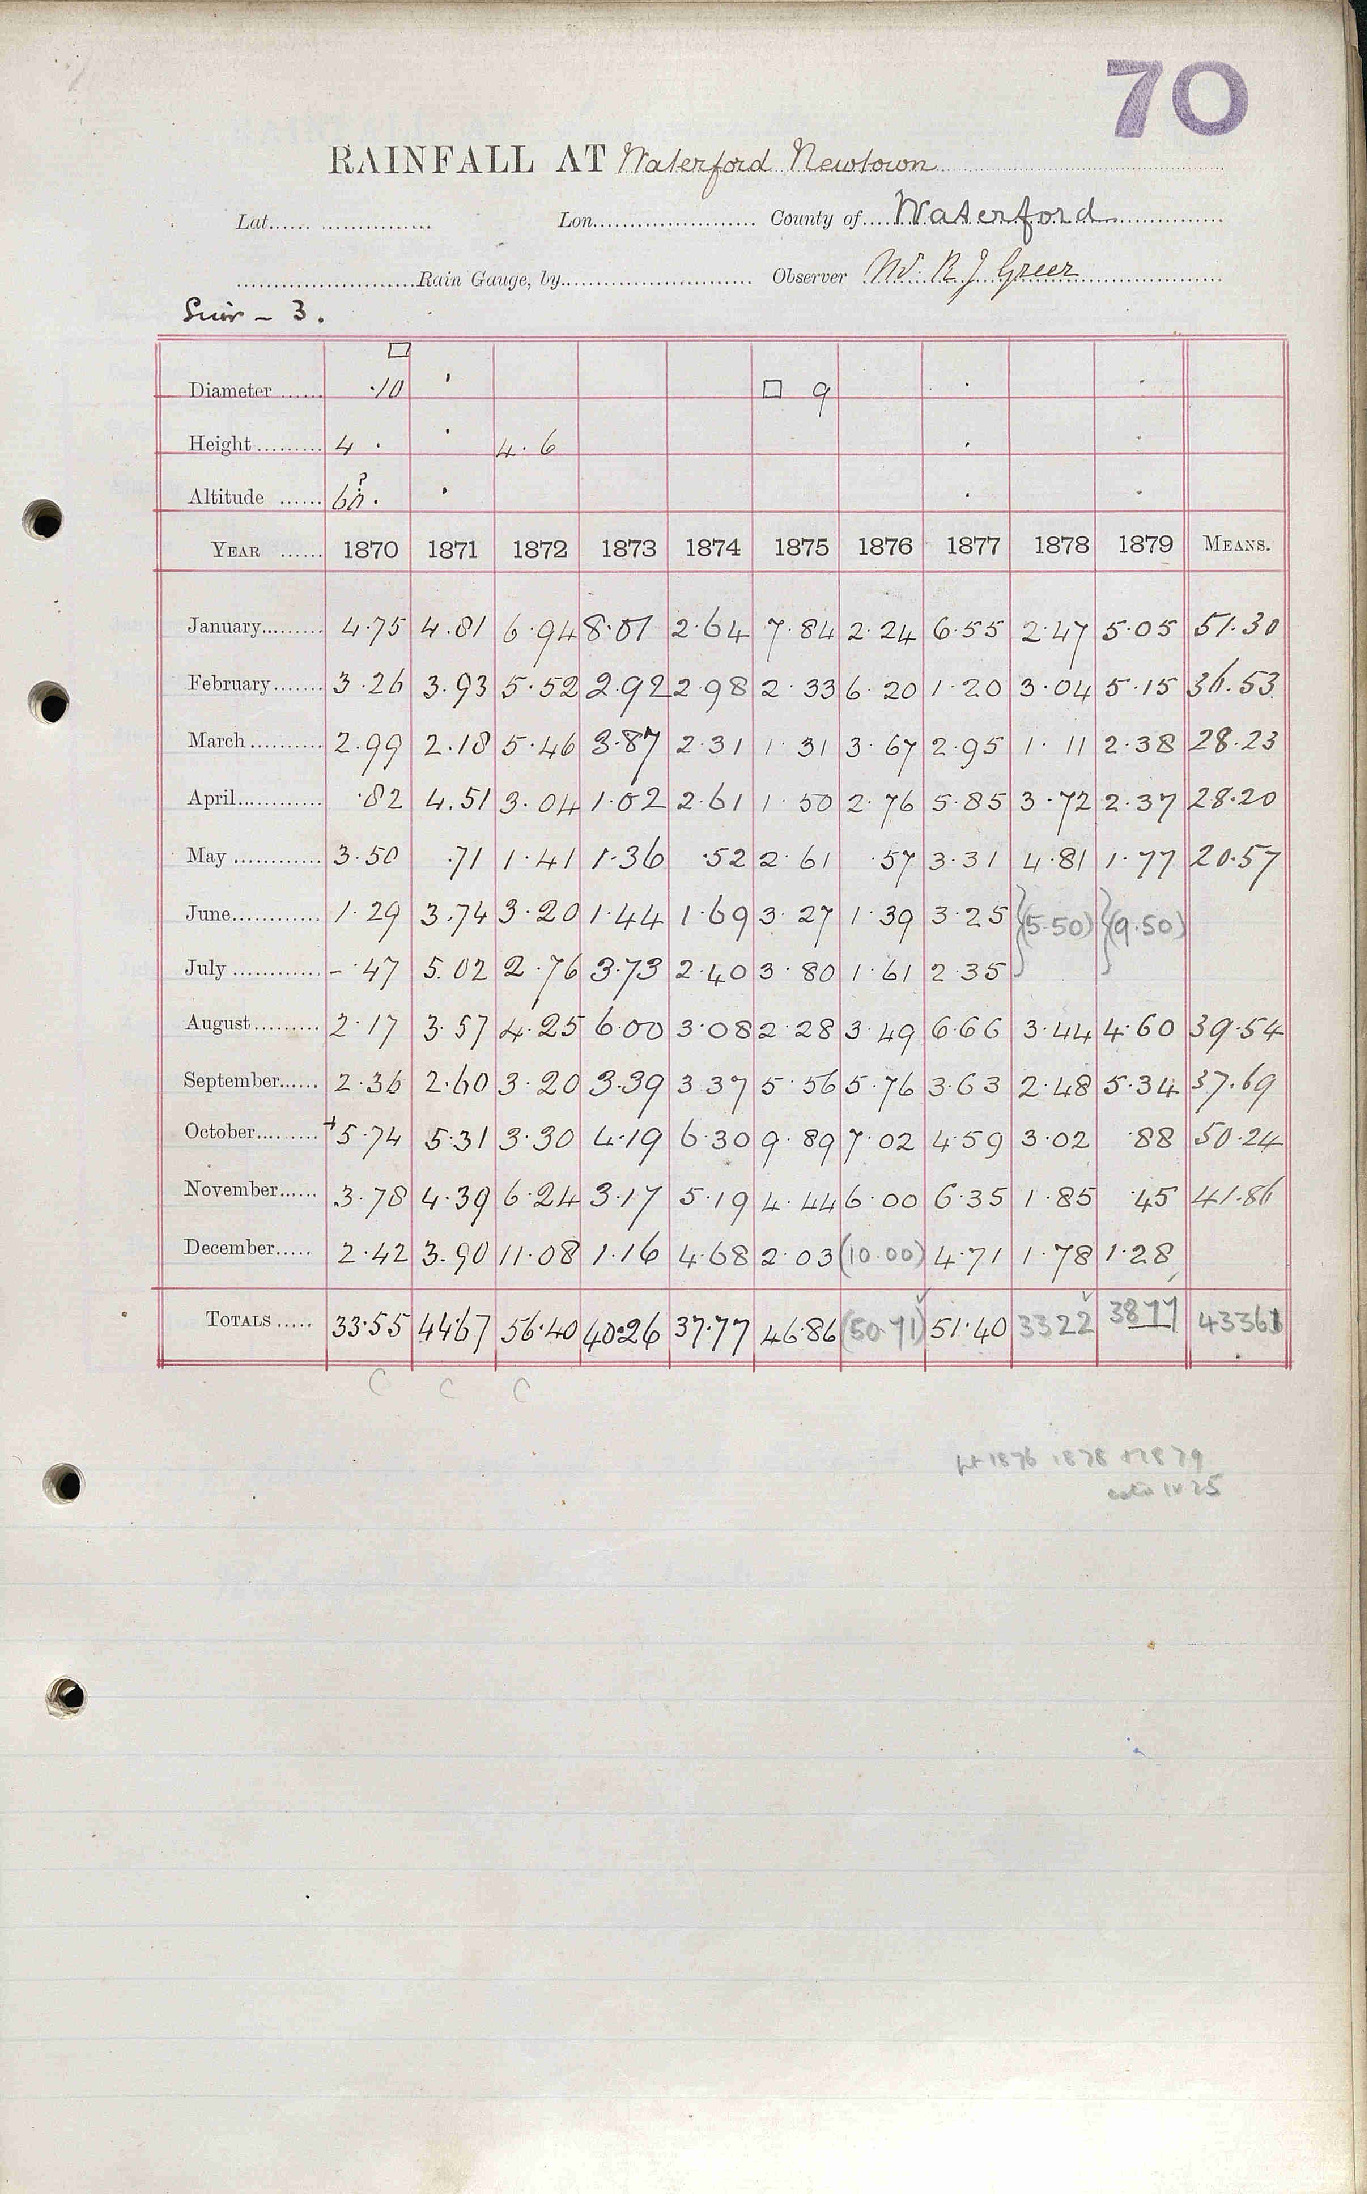 70
RAINFALL AT Waterford Newtown
Lat. Lon. County of Waterford
Rain Gauge, by Observer W. R J Greer
Suir - 3.
Diameter ·10 □ 9
Height 4 · 4·6
Altitude 60 ?
YEAR 1870 1871 1872 1873 1874 1875 1876 1877 1878 1879 MEANS.
January 4·75 4.81 6·94 8·01 2·64 7·84 2·24 6·55 2·47 5·05 51·30
February 3·26 3.93 5·52 2·92 2·98 2·33 6·20 1·20 3·04 5·15 36·53
March 2·99 2.18 5·46 3·87 2·31 1·31 3·67 2·95 1·11 2·38 28·23
April ·82 4.51 3·04 1·02 2·61 1·50 2·76 5·85 3·72 2·37 28·20
May 3·50 ·71 1·41 1·36 ·52 2·61 ·57 3·31 4·81 1·77 20·57
June 1·29 3.74 3·20 1·44 1·69 3·27 1·39 3·25 (5·50) (9·50)
July - ·47 5.02 2·76 3·73 2·40 3·80 1·61 2·35
August 2·17 3·57 4·25 6·00 3·08 2·28 3·49 6·66 3·44 4·60 39·54
September 2·36 2·60 3·20 3·39 3·37 5·56 5·76 3·63 2·48 5·34 37·69
October +5·74 5·31 3·30 4·19 6·30 9·89 7·02 4·59 3·02 ·88 50·24
November 3·78 4·39 6·24 3·17 5·19 4·44 6·00 6·35 1·85 ·45 41·86
December 2·42 3·90 11·08 1·16 4·68 2·03 (10·00) 4·71 1·78 1·28
TOTALS 33·55 44·67 56·40 40·26 37·77 46·86 (50·71) 51·40 3322 3877 43361
C C C
1876 1878 1879